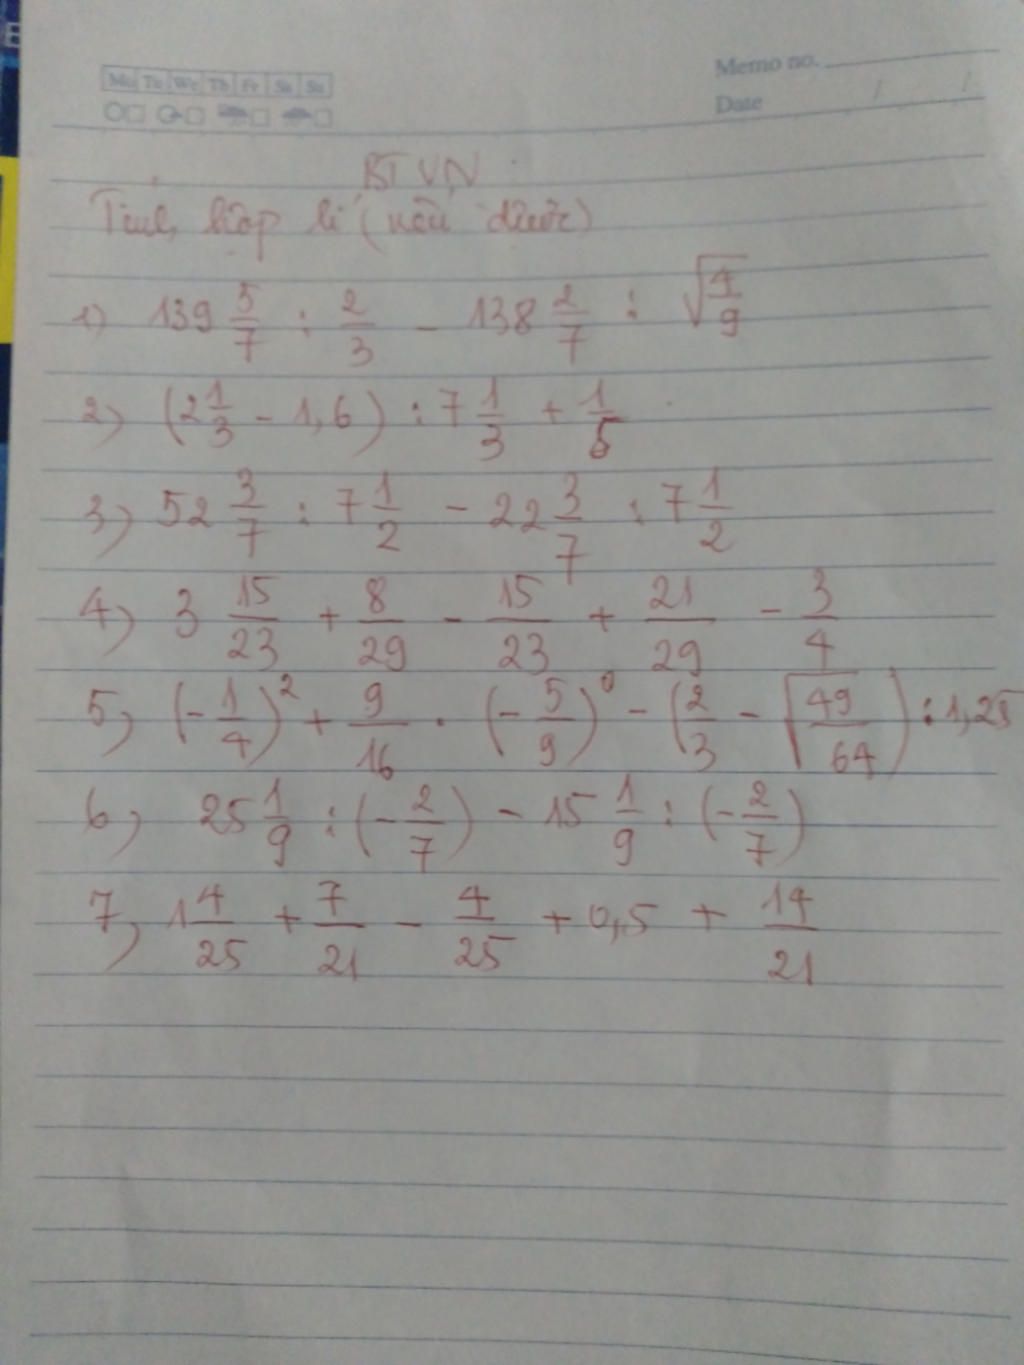 E
Mo Tu We Th Fr Sa Su
Memo no.
Date / /
BTVN
Tính hợp lí (nếu được)
1) 139 5/7 : 2/3 - 138 2/7 : √(4/9)
2) (2 1/3 - 1,6) : 7 1/3 + 1/5
3) 52 3/7 : 7 1/2 - 22 3/7 : 7 1/2
4) 3 15/23 + 8/29 - 15/23 + 21/29 - 3/4
5) (-1/4)² + 9/16 . (-5/9)⁰ - (2/3 - √(49/64)) : 1,25
6) 25 1/9 : (-2/7) - 15 1/9 : (-2/7)
7) 1 4/25 + 7/21 - 4/25 + 0,5 + 14/21